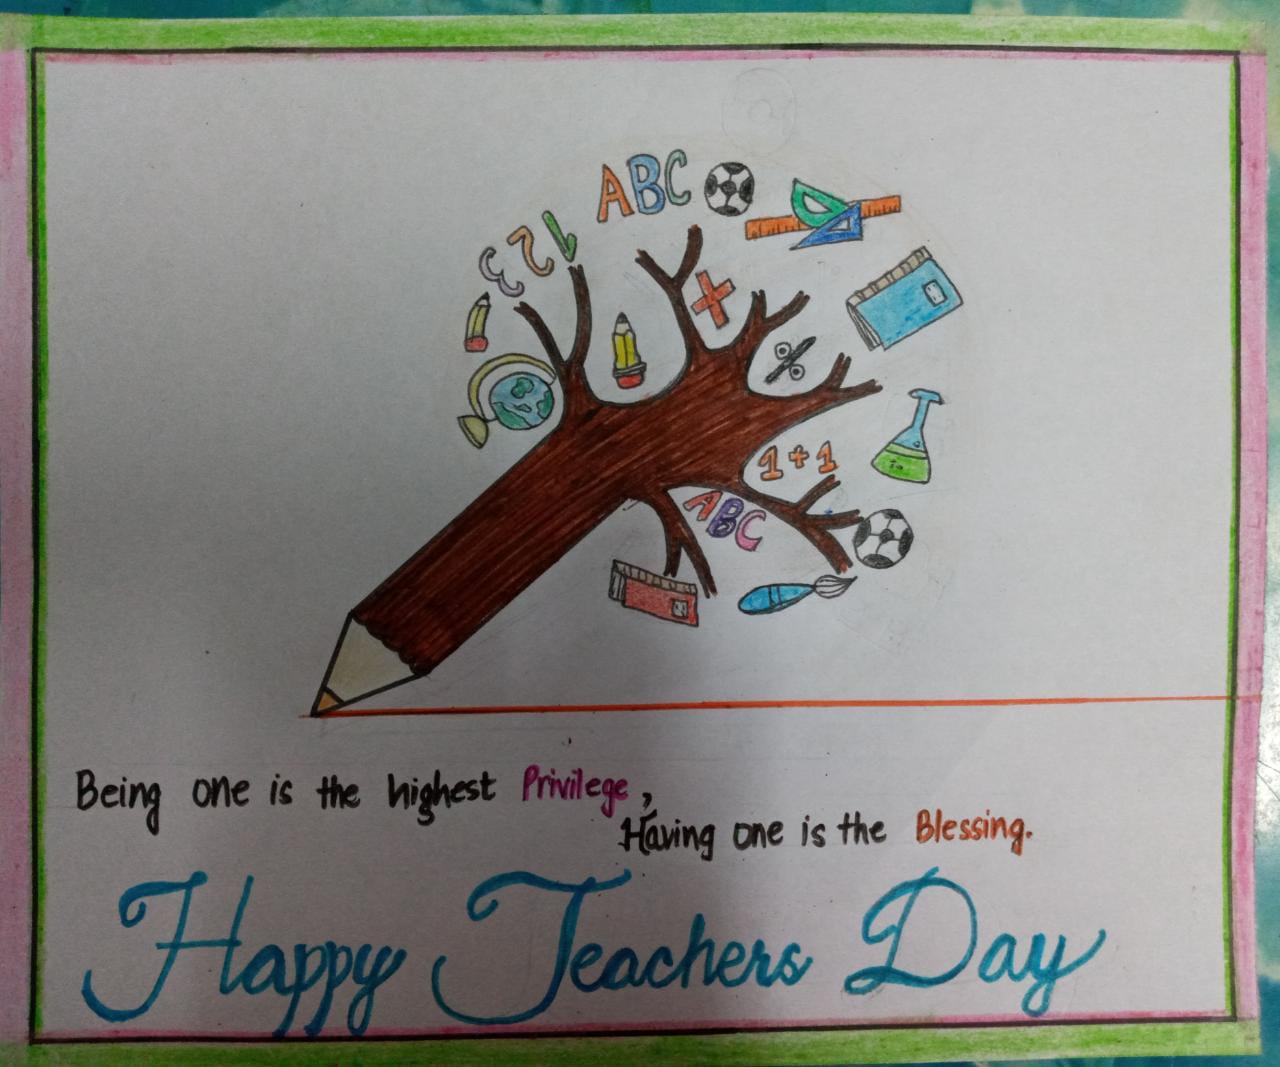 ABC
1 2 3
+
%
1+1
ABC
Being one is the highest Privilege,
Having one is the Blessing.
Happy Teachers Day